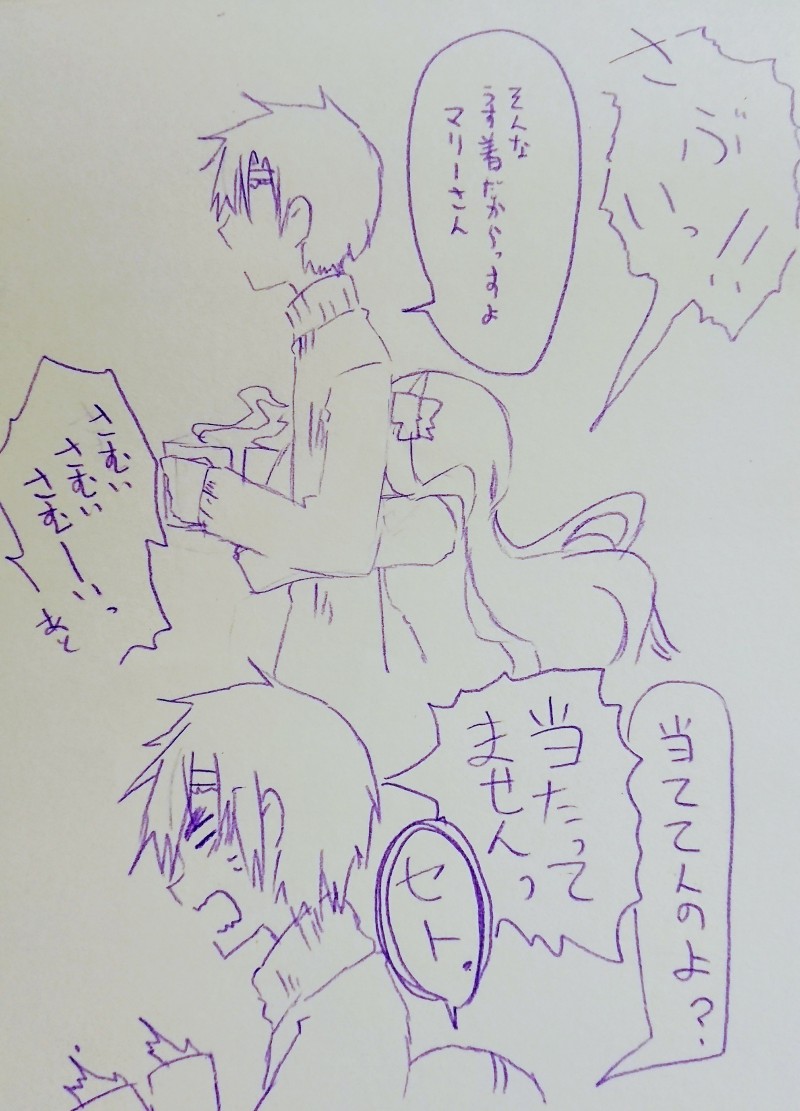 さぶいっ!!
そんな
うす着だからっすよ
マリーさん
さむい
さむい
さむーいっ
あと
当たって
ませんっ
当ててんのよ?
セト